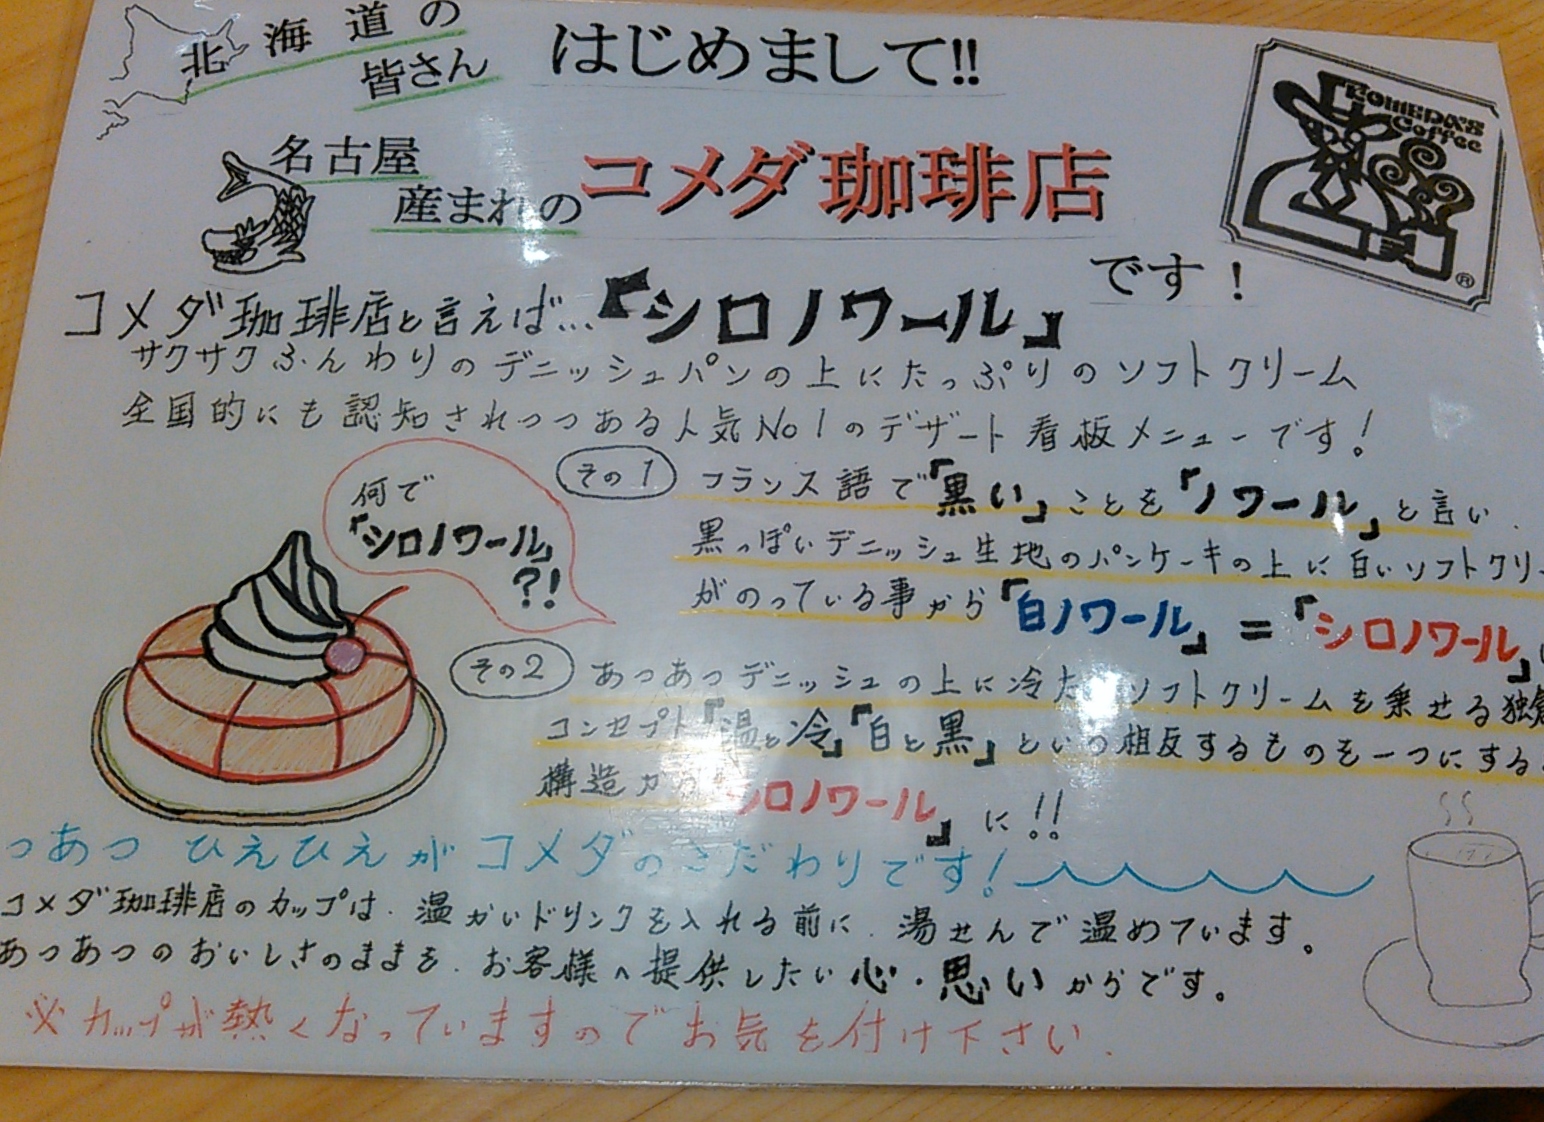 北海道の
皆さん
はじめまして!!
KOMEDA'S
Coffee
®
名古屋
産まれの
コメダ珈琲店
です！
コメダ珈琲店と言えば…『シロノワール』
サクサクふんわりのデニッシュパンの上にたっぷりのソフトクリーム
全国的にも認知されつつある人気No1のデザート看板メニューです!
何で
『シロノワール』
?!
その1 フランス語で『黒い』ことを『ノワール』と言い、
黒っぽいデニッシュ生地のパンケーキの上に白いソフトクリー
がのっている事から『白ノワール』=『シロノワール』
その2 あつあつデニッシュの上に冷た ソフトクリームを乗せる独
コンセプト『温と冷』『白と黒』という相反するものを一つにする
構造か シロノワール』に!!
つあつ ひえひえがコメダのこだわりです!
コメダ珈琲店のカップは、温かいドリンクを入れる前に、湯せんで温めています。
あつあつのおいしさのままを、お客様へ提供したい心・思いからです。
※カップが熱くなっていますのでお気を付け下さい、